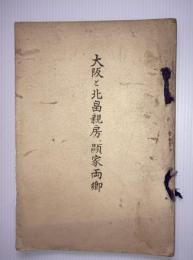 大阪と北畠親房、顕家両卿